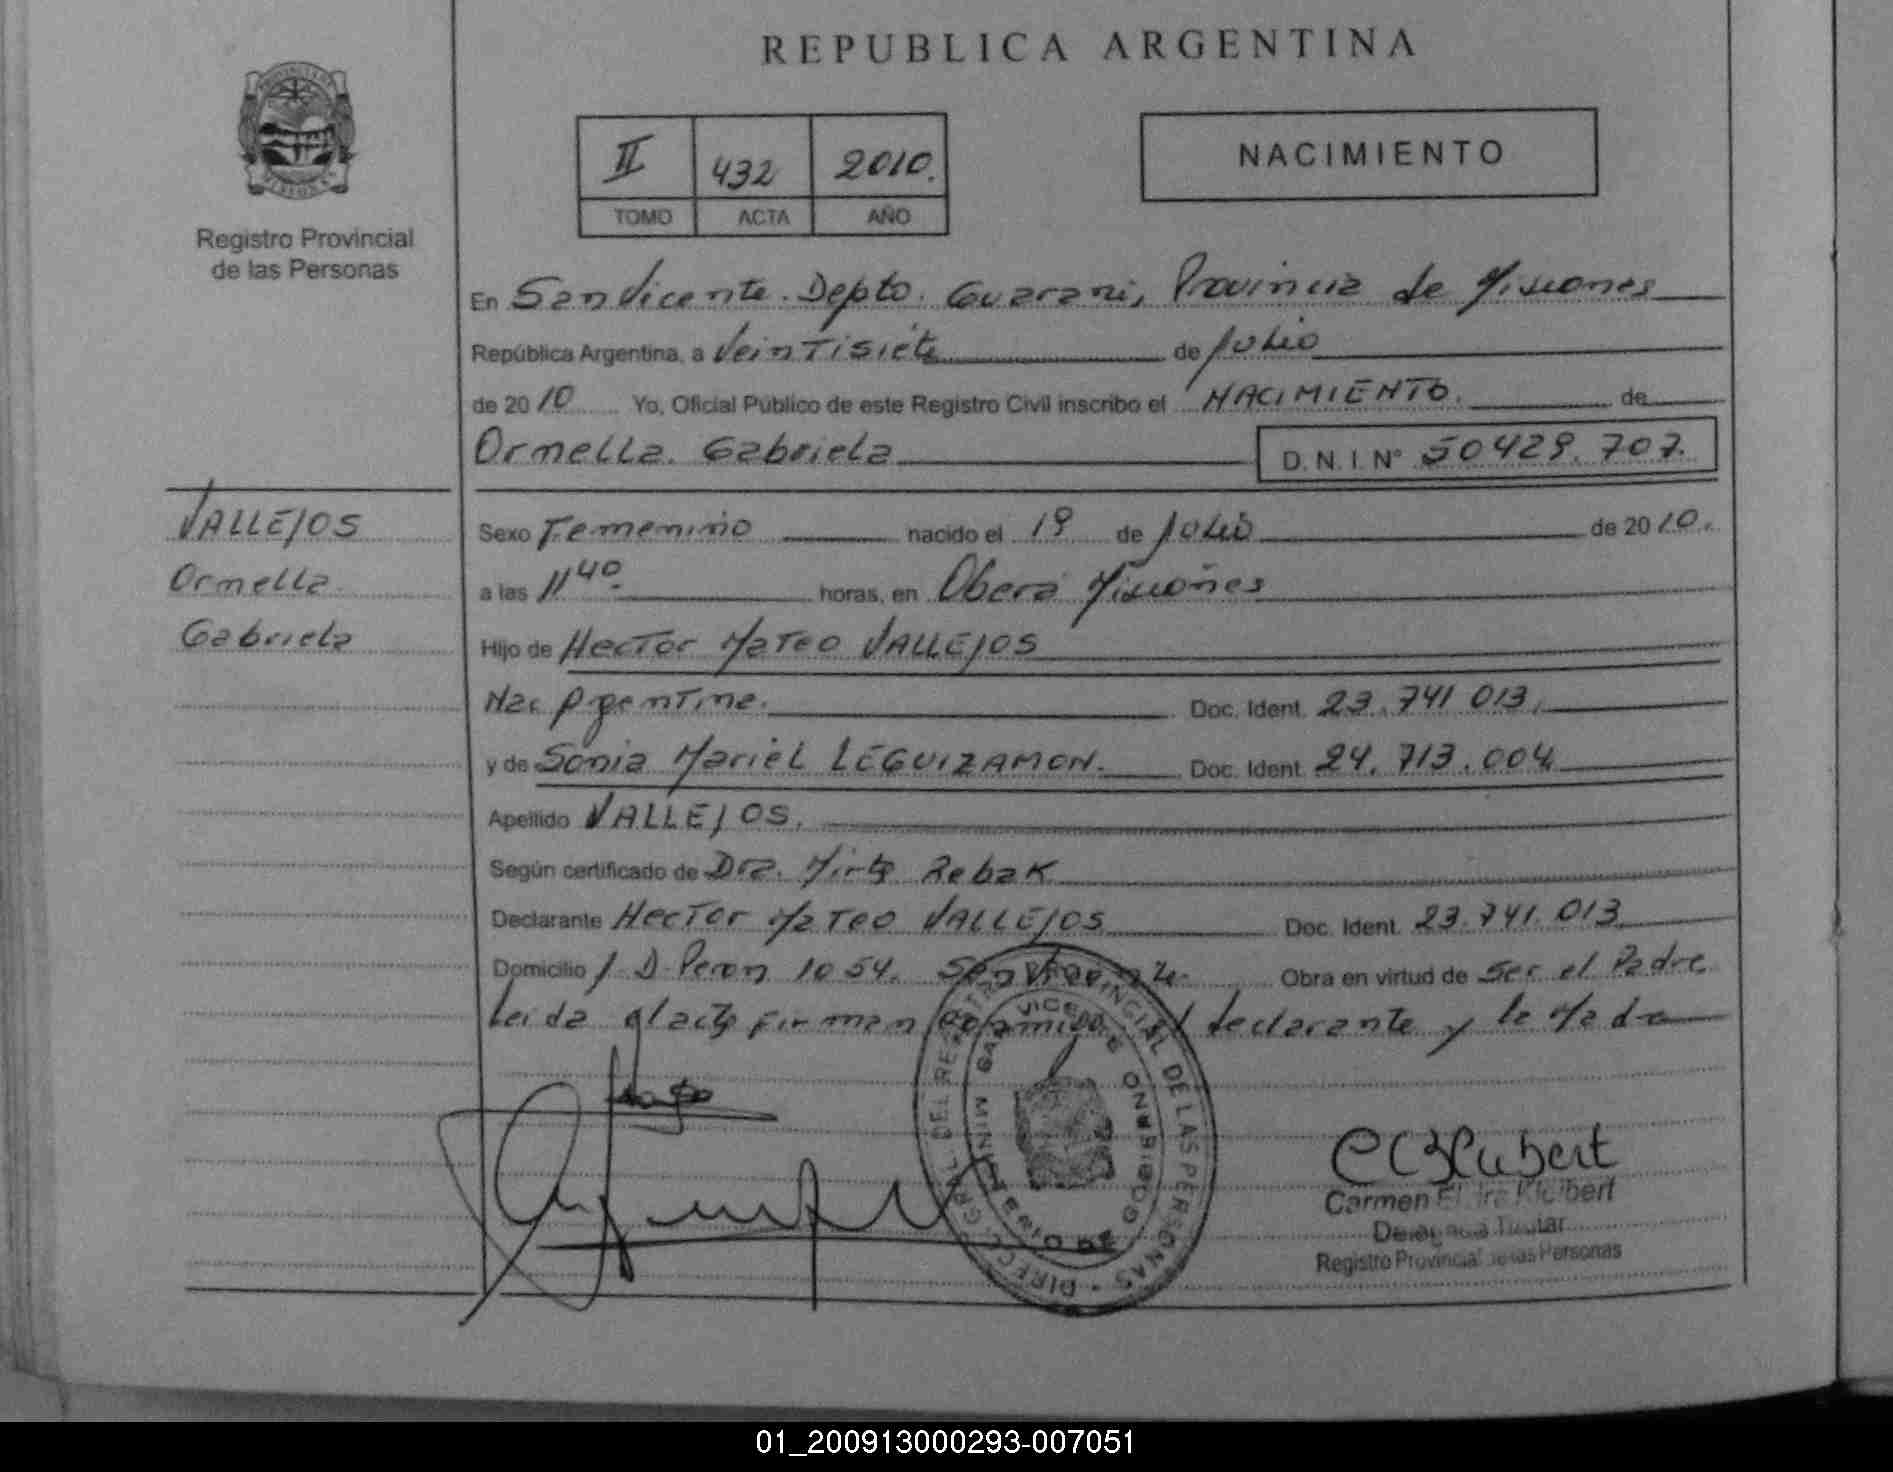 REPUBLICA ARGENTINA
II 432 2010.
TOMO ACTA AÑO
NACIMIENTO
Registro Provincial
de las Personas
En San Vicente. Depto. Guarani, Provincia de Misiones
República Argentina, a Veintisiete de Julio
de 2010 Yo, Oficial Público de este Registro Civil inscribo el NACIMIENTO. de
Ornella. Gabriela D.N.I. Nº 50429.707.
VALLEJOS
Ornella.
Gabriela
Sexo Femenino nacido el 19 de Julio de 2010.
a las 11 40. horas, en Oberá Misiones
Hijo de Hector Mateo VALLEJOS
Nac. Argentina. Doc. Ident. 23.741 013.
y de Sonia Mariel LEGUIZAMON. Doc. Ident. 24.713.004
Apellido VALLEJOS.
Según certificado de Dra. Mirta Rebak
Declarante Hector Mateo VALLEJOS Doc. Ident. 23.741.013
Domicilio J.D. Peron 1054. San Vicente. Obra en virtud de ser el Padre
Leida el acta firman conmigo el declarante y la Madre
DIRECC. GRAL. DEL REGISTRO PROVINCIAL DE LAS PERSONAS
MINISTERIO DE GOBIERNO
SAN VICENTE
Carmen Elvira Kleibert
Delegada Titular
Registro Provincial de las Personas
01_200913000293-007051